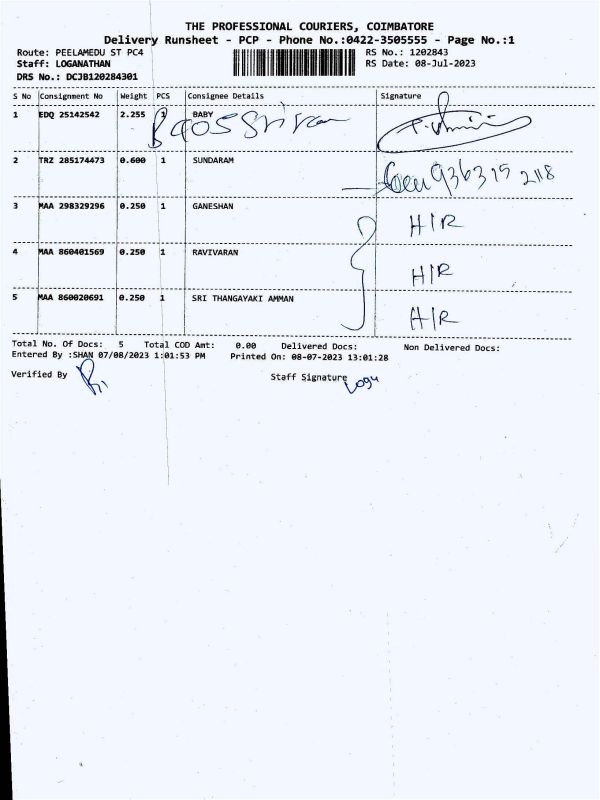 THE PROFESSIONAL COURIERS, COIMBATORE
Delivery Runsheet - PCP - Phone No.:0422-3505555 - Page No.:1
Route: PEELAMEDU ST PC4 RS No.: 1202843
Staff: LOGANATHAN RS Date: 08-Jul-2023
DRS No.: DCJB120284301
S No Consignment No Weight PCS Consignee Details Signature
1 EDQ 25142542 2.255 1 BABY
2 TRZ 285174473 0.600 1 SUNDARAM
3 MAA 298329296 0.250 1 GANESHAN H/R
4 MAA 860401569 0.250 1 RAVIVARAN H/R
5 MAA 860020691 0.250 1 SRI THANGAYAKI AMMAN H/R
Total No. Of Docs: 5 Total COD Amt: 0.00 Delivered Docs: Non Delivered Docs:
Entered By :SHAN 07/08/2023 1:01:53 PM Printed On: 08-07-2023 13:01:28
Verified By Staff Signature Logu